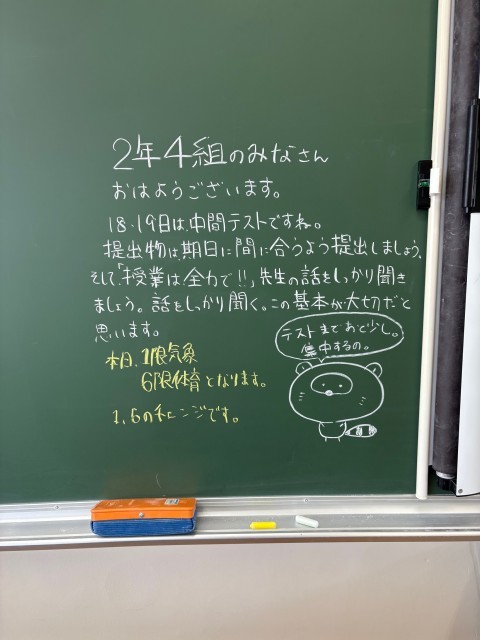 2年4組のみなさん
おはようございます。
18・19日は、中間テストですね。
提出物は、期日に間に合うよう提出しましょう。
そして、「授業は全力で!!」先生の話をしっかり聞き
ましょう。話をしっかり聞く。この基本が大切だと
思います。
テストまであと少し。
集中するの。
本日、1限気象
6限体育となります。
1、6のチェンジです。